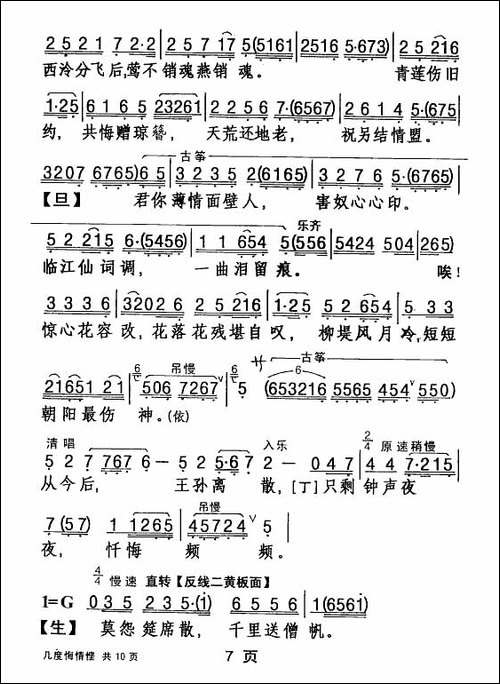 2 5 2 1 7 2·2 | 2 5 7 1 7 5 (5161 | 2516 5·673) | 2 5 216
西泠分飞后,莺不销魂燕销 魂。 青莲伤旧
1·25 | 6 1 6 5 23261 | 2 2 5 6 7·(6567) | 2 6 1 4 5·(675
约, 共悔赠琼簪, 天荒还地老, 祝另结情盟。
古筝
3207 6765) 6 5 | 3 2 3 5 2 (6165) | 3 2 7 6 5·(6765)
【旦】 君你薄情面壁人, 害奴心心印。
乐齐
5 2 215 6·(5456) | 1 1 654 5 (556 | 5424 504 | 265)
临江仙词调, 一曲泪留痕。 唉!
3 3 3 6 | 3202 6 2 5 216 | 1·25 5 2 654 | 5 33
惊心花容改, 花落花残堪自叹, 柳堤风月冷,短短
吊慢 サ 古筝
21651 21 | 506 7267 ∨ | 5 (653216 5565 454 ∨ 550)
朝阳最伤 神。(依)
清唱 入乐 2/4 原速稍慢
5 2 7 767 6 – 5 2 5·6 7 2 – 0 4 7 | 4 4 7·215
从今后, 王孙离 散,[丁]只剩钟声夜
吊慢
7 (57) 1 1265 | 45724 ∨ 5
夜, 忏悔 频 频。
4/4 慢速 直转【反线二黄板面】
1=G 0 3 5 2 3 5·(i) | 6 5 5 6 1 (6561)
【生】 莫怨筵席散, 千里送僧帆。
几度悔情悭 共10页 7 页